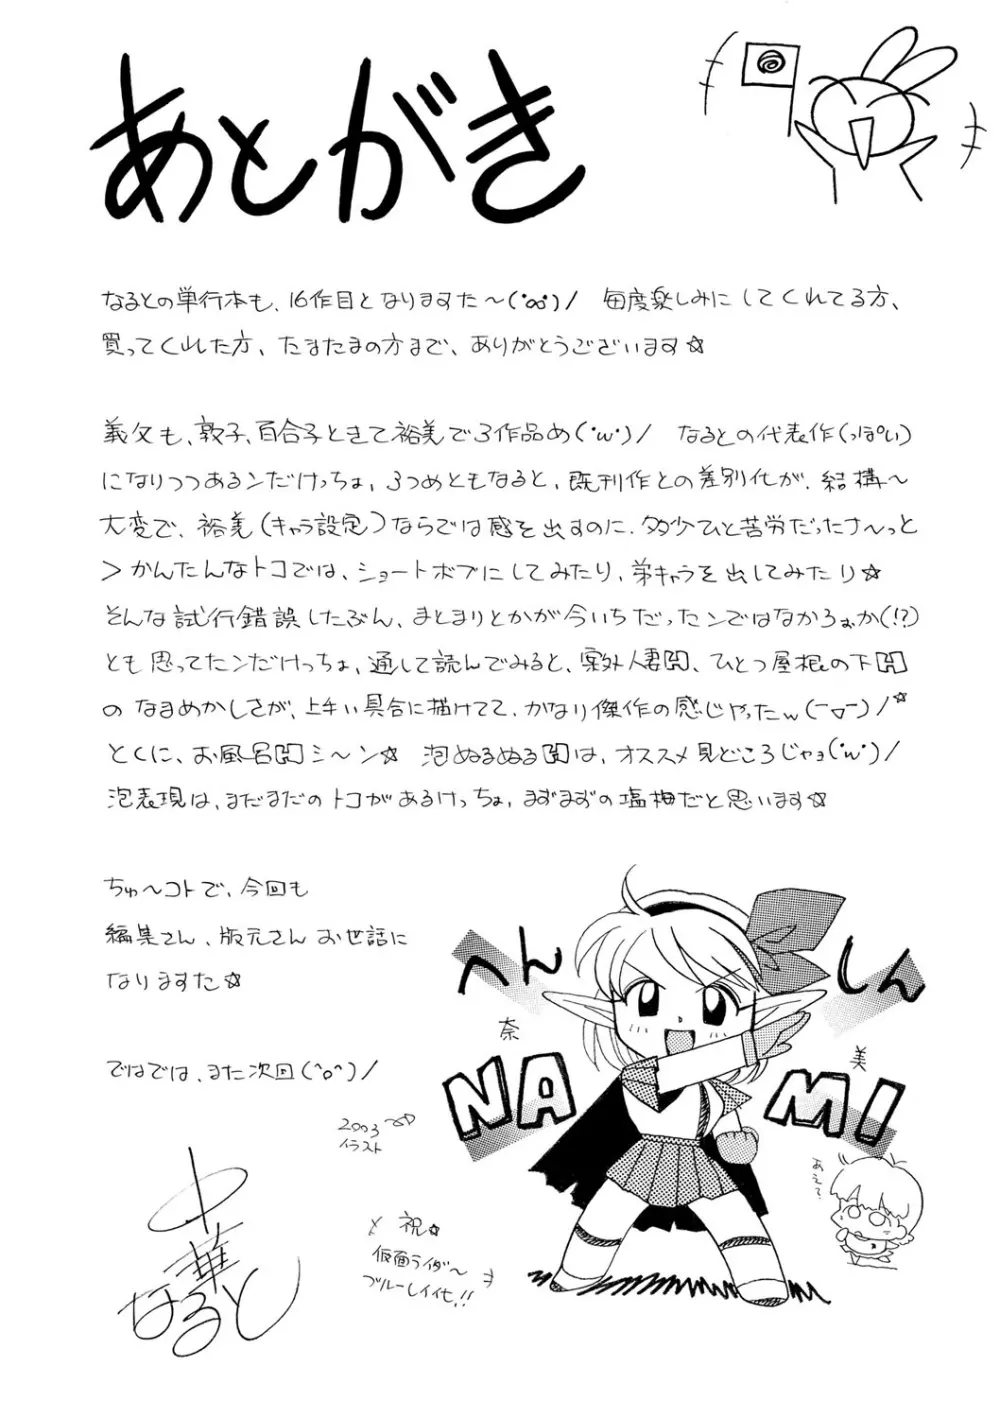 あとがき
なるとの単行本も、16作目となりますた〜(°∞°)/ 毎度楽しみにしてくれてる方、
買ってくれた方、たまたまの方まで、ありがとうございます☆
義父も、敦子、百合子ときて裕美で3作品め(°w°)/ なるとの代表作(っぽい)
になりつつあるンだけっちょ、3つめともなると、既刊作との差別化が、結構〜
大変で、裕美(キャラ設定)ならでは感を出すのに、多少ひと苦労だったさ〜っと
>かんたんなトコでは、ショートボブにしてみたり、弟キャラを出してみたり☆
そんな試行錯誤したぶん、まとまりとかが今いちだったンではなかろぉか(!?)
とも思ってたンだけっちょ、通して読んでみると、案外人妻H、ひとつ屋根の下H
のなまめかしさが、上手い具合に描けてて、かなり傑作の感じやったw(ー▽ー)/☆
とくに、お風呂Hシ〜ン☆ 泡ぬるぬるHは、オススメ見どころじゃョ(°w°)/
泡表現は、まだまだのトコがあるけっちょ、まずまずの塩梅だと思います☆
ちゅ〜コトで、今回も
編集さん、版元さんお世話に
なりますた☆
ではでは、また次回(^o^)/
へん しん
奈 美
NA MI
2003
イラスト
あえて?
祝☆
仮面ライダ〜
ブルーレイ化!!
中華
なると